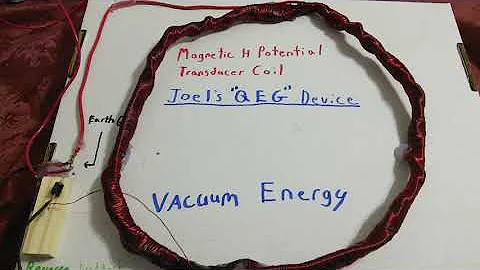 Magnetic H Potential
Transducer Coil
Joel's "QEG" Device
Earth
Vacuum Energy